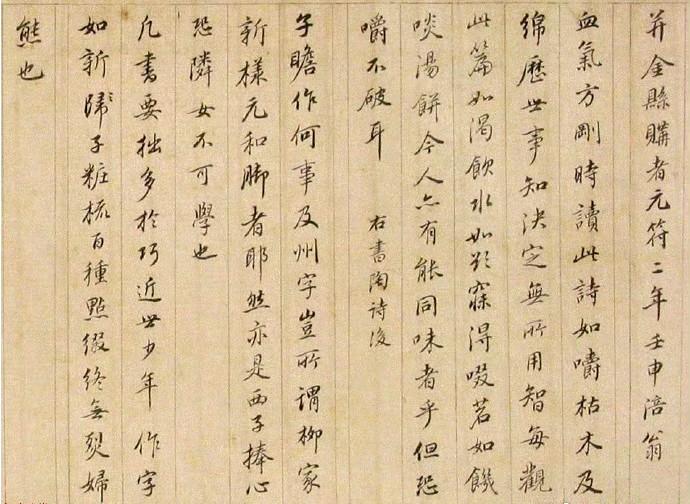 并金縣購者元符二年壬申涪翁
血氣方剛時讀此詩如嚼枯木及
綿歷世事知決定無所用智每觀
此篇如渴飲水如欲寐得啜茗如饑
啖湯餅今人亦有能同味者乎但恐
嚼不破耳 右書陶詩後
子瞻作何事及州字豈所謂柳家
新樣元和脚者耶然亦是西子捧心
恐隣女不可學也
凡書要拙多於巧近世少年作字
如新歸子粧梳百種點綴終無烈婦
熊也